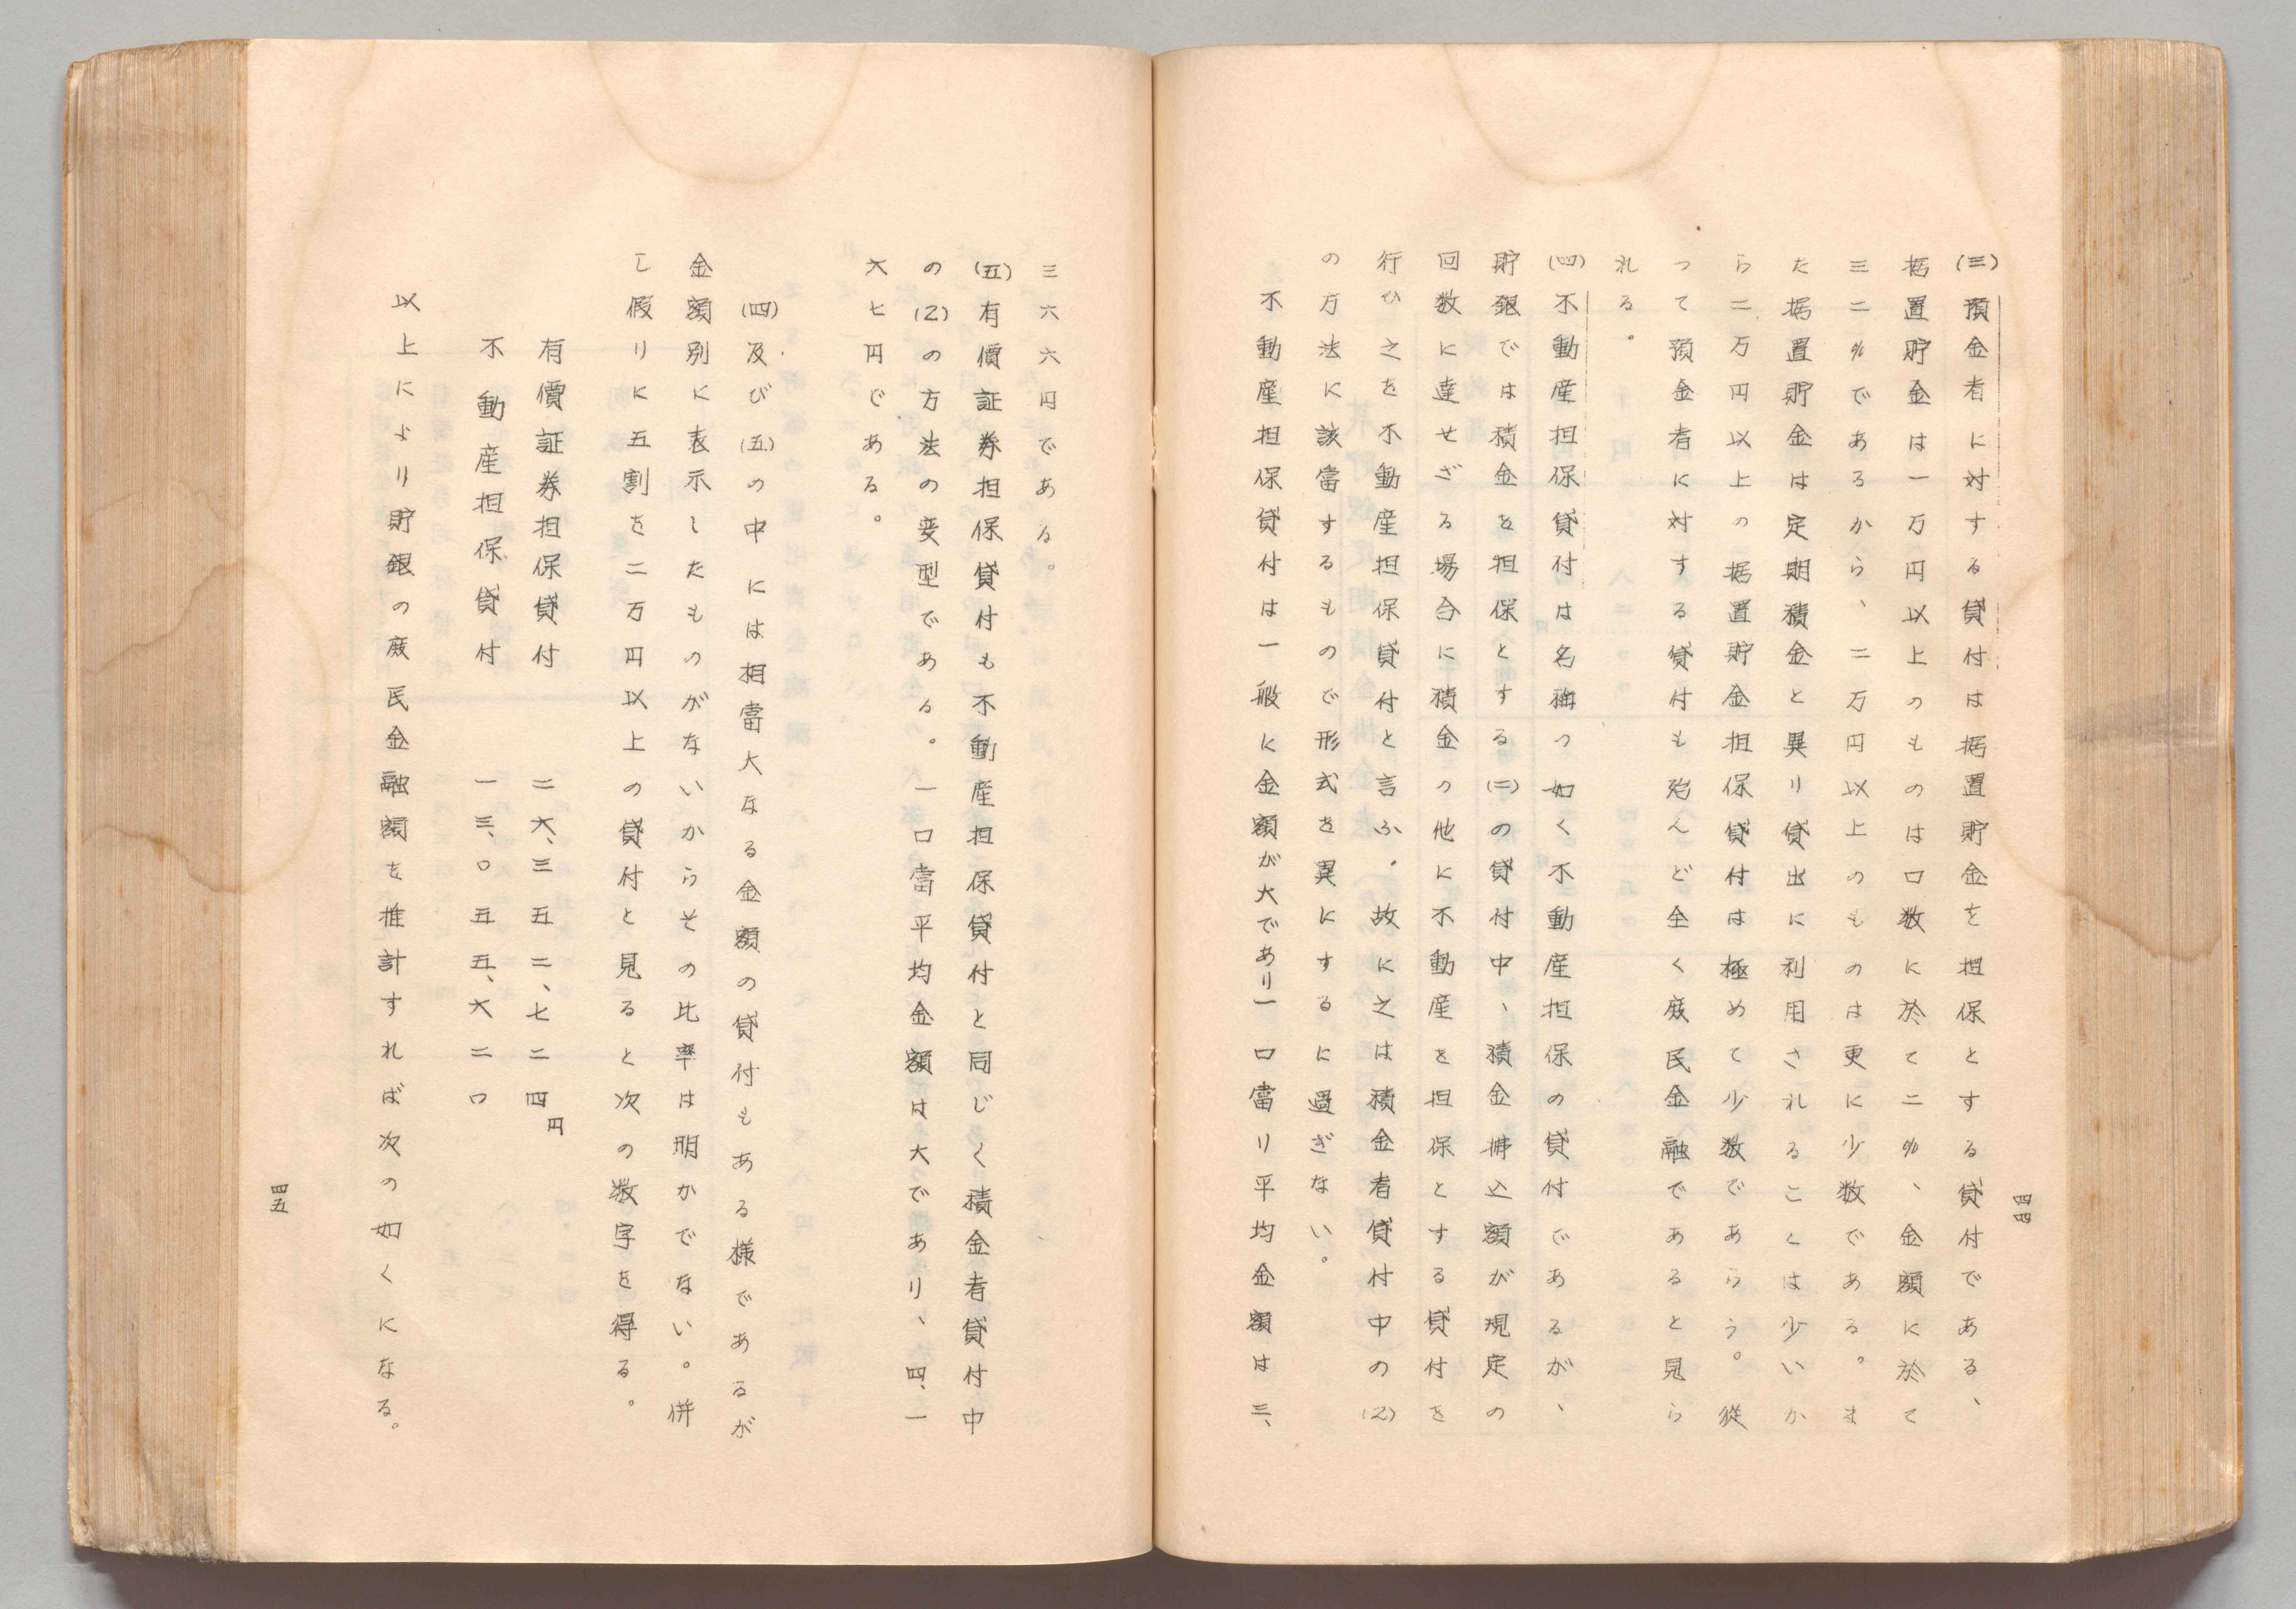 四四
(三)預金者に対する貸付は据置貯金を担保とする貸付である、
据置貯金は一万円以上のものは口数に於て二%、金額に於て
三二%であるから、二万円以上のものは更に少数である。ま
た据置貯金は定期積金と異り貸出に利用されることは少いか
ら二万円以上の据置貯金担保貸付は極めて少数であらう。従
つて預金者に対する貸付も殆んど全く庶民金融であると見ら
れる。
(四)不動産担保貸付は名稱の如く不動産担保の貸付であるが、
貯銀では積金を担保とする(二)の貸付中、積金拂込額が規定の
回数に達せざる場合に積金の他に不動産を担保とする貸付を
行ひ之を不動産担保貸付と言ふ。故に之は積金者貸付中の(2)
の方法に該當するもので形式を異にするに過ぎない。
不動産担保貸付は一般に金額が大であり一口當り平均金額は三、
三六六円である。
(五)有價証券担保貸付も不動産担保貸付と同じく積金者貸付中
の(2)の方法の変型である。一口當平均金額は大であり、四、一
六七円である。
(四)及び(五)の中には相當大なる金額の貸付もある様であるが
金額別に表示したものがないからその比率は明かでない。併
し假りに五割を二万円以上の貸付と見ると次の数字を得る。
有價証券担保貸付 二六、三五二、七二四円
不動産担保貸付 一三、〇五五、六二〇
以上により貯銀の庶民金融額を推計すれば次の如くになる。
四五